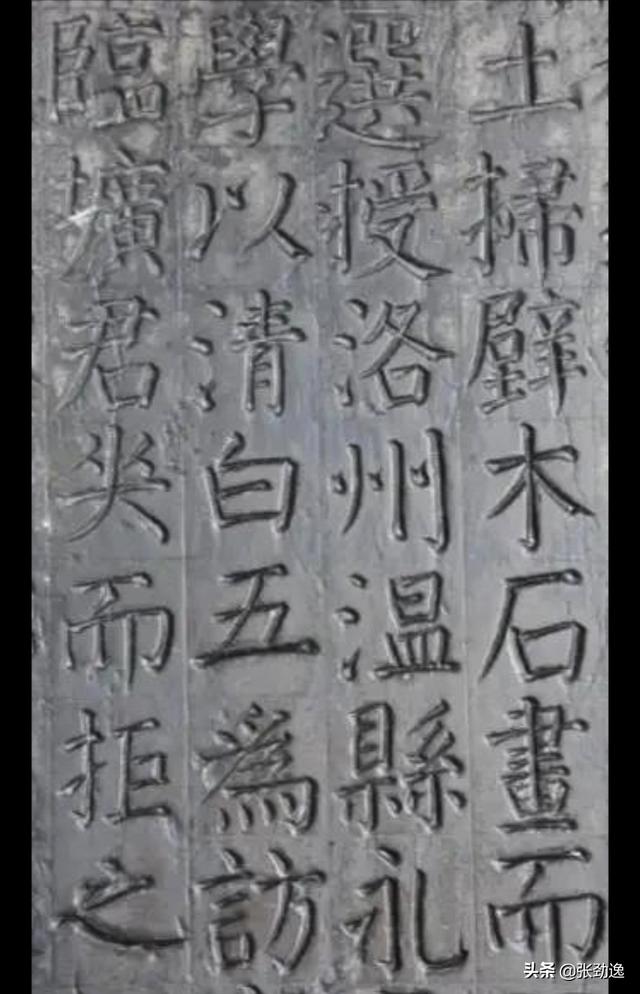 土掃壁木石畫而
選授洛州温縣永
學以清白五為訪
臨壙君而拒之
头条 @张劲逸